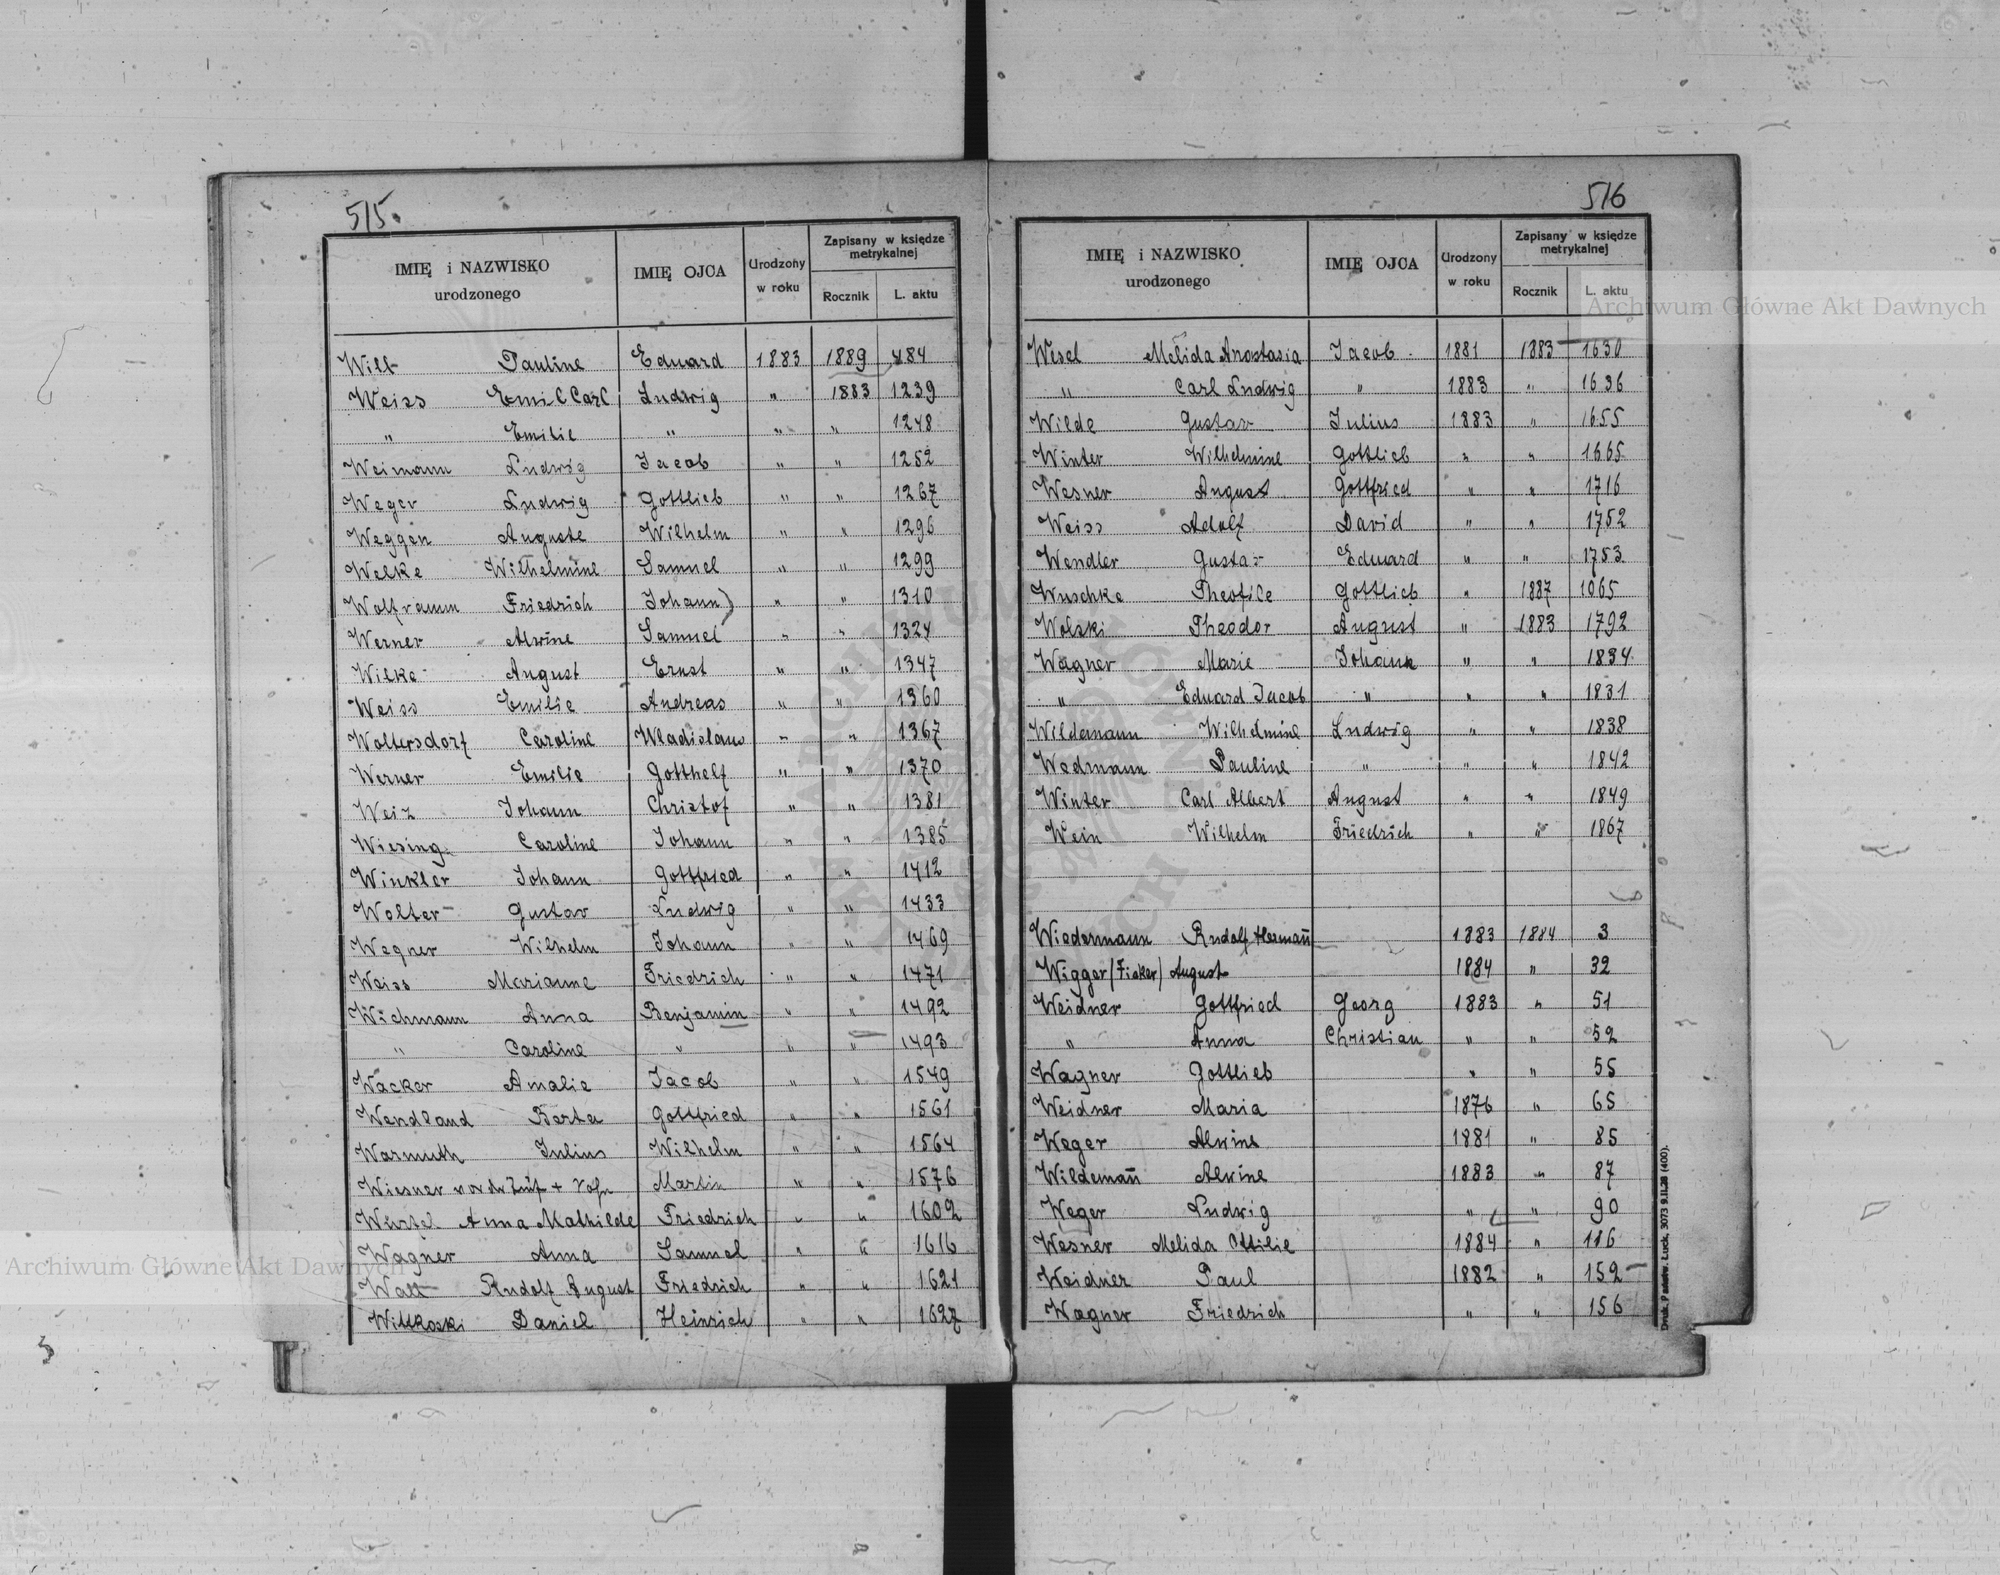 515.
IMIĘ i NAZWISKO urodzonego IMIĘ OJCA Urodzony w roku Zapisany w księdze metrykalnej Rocznik L. aktu
Wilt Pauline Eduard 1883 1889 484
Weiss Emil Carl Ludwig " 1883 1239
" Emilie " " " 1248
Weimann Ludwig Jacob " " 1252
Weger Ludwig Gottlieb " " 1267
Weggen Auguste Wilhelm " " 1296
Welke Wilhelmine Samuel " " 1299
Wolframm Friedrich Johann) " " 1310
Werner Alwine Samuel " " 1324
Wilke August Ernst " " 1347
Weiss Emilie Andreas " " 1360
Woltersdorf Caroline Wladislaus " " 1367
Werner Emilie Gotthelf " " 1370
Weiz Johann Christof " " 1381
Wiesing Caroline Johann " " 1385
Winkler Johann Gottfried " " 1412
Wolter Gustav Ludwig " " 1433
Wegner Wilhelm Johann " " 1469
Weiss Marianne Friedrich " " 1471
Wichmann Anna Benjamin " " 1492
" Caroline " " " 1493
Wacker Amalie Jacob " " 1549
Wendland Berta Gottfried " " 1561
Warmuth Julius Wilhelm " " 1564
Wiesner vor der + Martin " " 1576
Anna Mathilde Friedrich " " 1602
Wagner Anna Samuel " " 1616
Watt Rudolf August Friedrich " " 1621
Wittkoski Daniel Heinrich " " 1627
516
IMIĘ i NAZWISKO urodzonego IMIĘ OJCA Urodzony w roku Zapisany w księdze metrykalnej Rocznik L. aktu
Wesel Melida Anastasia Jacob 1881 1883 1630
" Carl Ludwig " 1883 " 1636
Wilde Gustav Julius 1883 " 1655
Winter Wilhelmine Gottlieb " " 1665
Wesner August Gottfried " " 1716
Weiss Adolf David " " 1752
Wendler Gustav Eduard " " 1753
Wuschke Theofile Gottlieb " 1887 1065
Wolski Theodor August " 1883 1792
Wagner Marie Johann " " 1834
" Eduard Jacob " " " 1831
Wildemann Wilhelmine Ludwig " " 1838
Wedmann Pauline " " " 1842
Winter Carl Albert August " " 1849
Wein Wilhelm Friedrich " " 1867
Wiedermann Rudolf Hermañ 1883 1884 3
Wigger (Ficker) August 1884 " 32
Weidner Gottfried Georg 1883 " 51
" Anna Christian " " 52
Wagner Gottlieb " " 55
Weidner Maria 1876 " 65
Weger Alwine 1881 " 85
Wildemañ Alwine 1883 " 87
Weger Ludwig " " 90
Wesner Melida Ottilie 1884 " 116
Weidner Paul 1882 " 152
Wagner Friedrich " " 156
Druk. Państw. Łuck, 3073 9.II.28 (400).
Archiwum Główne Akt Dawnych
Archiwum Główne Akt Dawnych